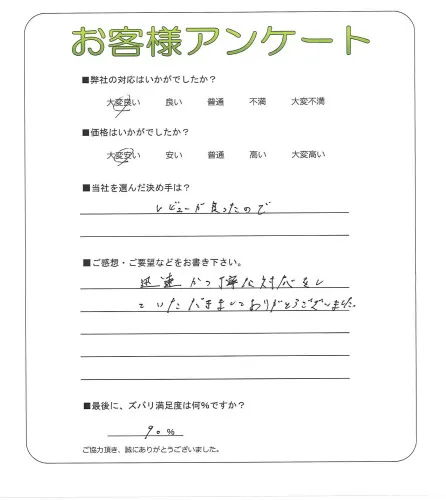 お客様アンケート
■弊社の対応はいかがでしたか？
大変良い 良い 普通 不満 大変不満
■価格はいかがでしたか？
大変安い 安い 普通 高い 大変高い
■当社を選んだ決め手は？
レビューが良ったので
■ご感想・ご要望などをお書き下さい。
迅速かつ丁寧な対応をし
ていただきましてありがとうございました。
■最後に、ズバリ満足度は何%ですか？
90%
ご協力頂き、誠にありがとうございました。